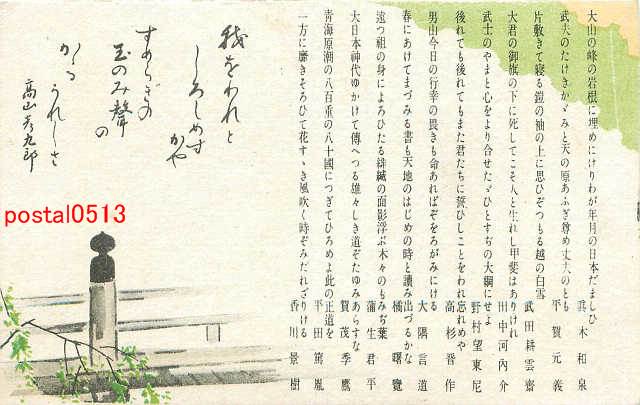 大山の峰の岩根に埋めにけりわが年月の日本だましひ 眞木和泉
武夫のたけきかゞみと天の原あふぎ尊め丈夫のとも 平賀元義
片敷きて寝る鎧の袖の上に思ひぞつもる越の白雪 武田耕雲齋
大君の御旗の下に死してこそ人と生れし甲斐はありけれ 田中河内介
武士のやまと心をより合せたゞひとすぢの大綱にせよ 野村望東尼
後れても後れてもまた君たちに誓ひしことをわれ忘れめや 高杉晋作
男山今日の行幸の畏きも命あればぞをろがみにける 大隈言道
春にあけてまづみる書も天地のはじめの時と讀み出づるかな 橘曙覽
遠つ祖の身によろひたる緋縅の面影浮ぶ木々のもみぢ葉 蒲生君平
大日本神代ゆかけて傳へつる雄々しき道ぞたゆみあらすな 賀茂季鷹
青海原潮の八百重の八十國につぎてひろめよ此の正道を 平田篤胤
一方に靡きそろひて花すゝき風吹く時ぞみだれざりける 香川景樹
我をわれと
しろしめす
かや
すめらぎの
玉のみ聲
の
かゝる
うれしさ
高山彦九郎
postal0513